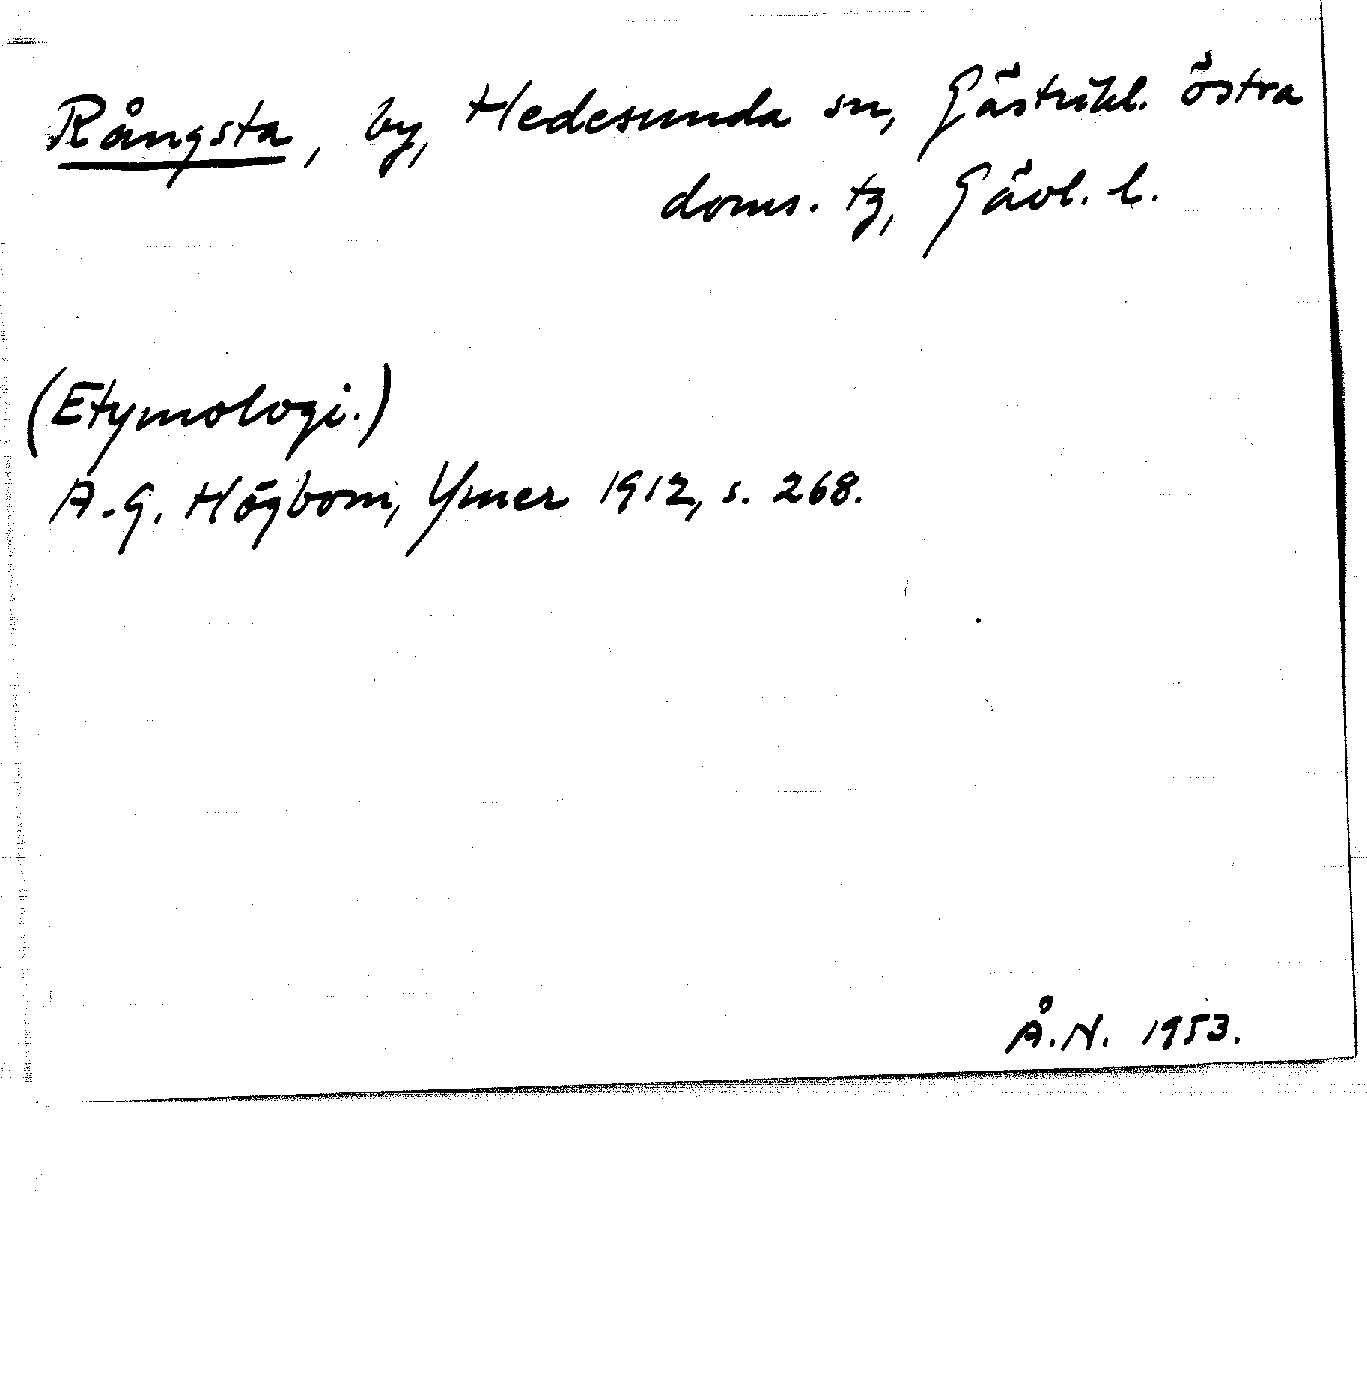 Rångsta, by, Hedesunda sn, Gästrikl. östra
doms. tg, Gävl. l.
(Etymologi.)
A.G. Högbom, Ymer 1912, s. 268.
Å.N. 1953.